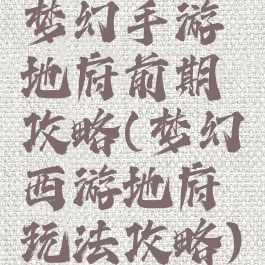 梦幻手游
地府前期
攻略(梦幻
西游地府
玩法攻略)